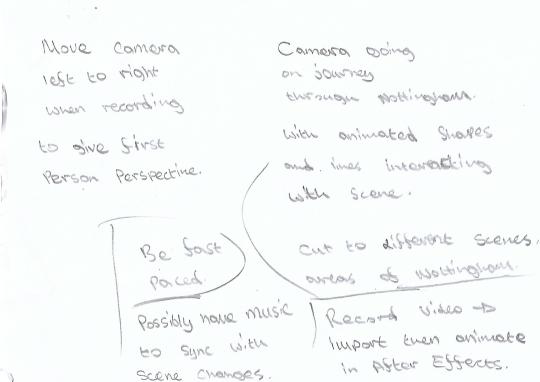 Move camera
left to right
when recording
to give first
Person Perspective.
Camera going
on journey
through Nottingham.
with animated shapes
and lines interacting
with scene.
Cut to different scenes.
areas of Nottingham.
Be fast
paced.
Possibly have music
to sync with
scene changes.
Record video →
import then animate
in After Effects.